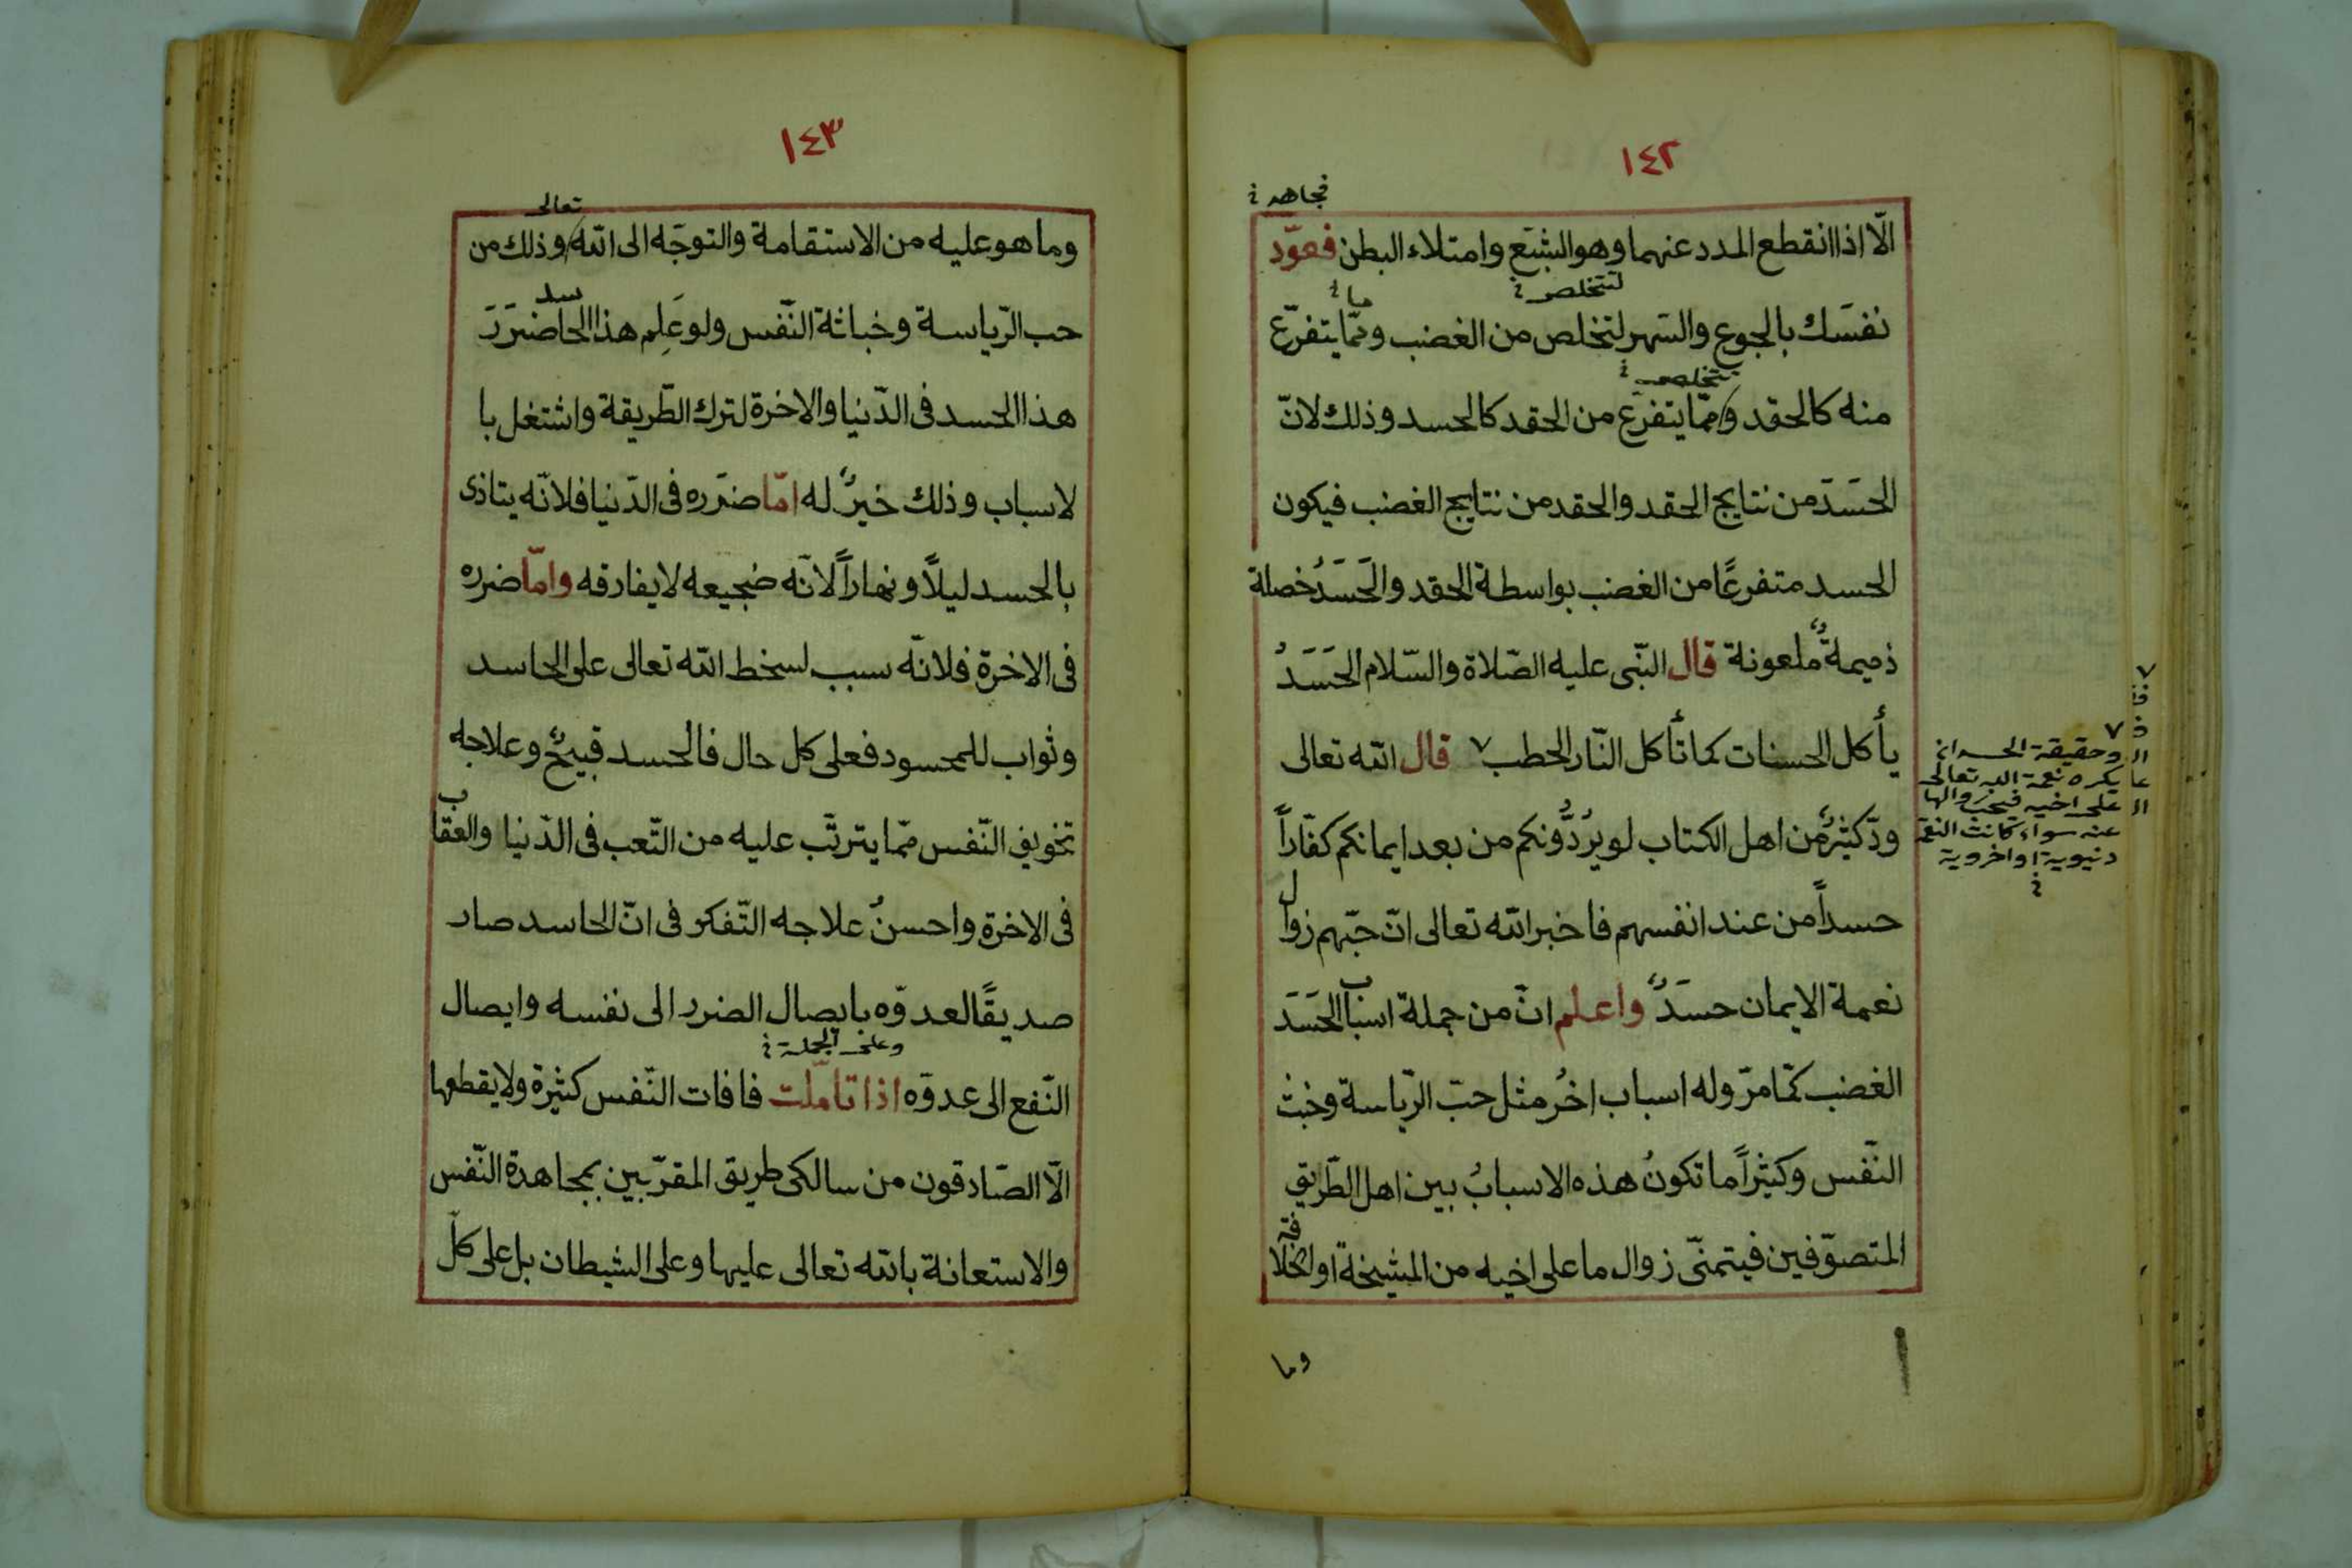 ١٤٢
فجاهد
الّا اذا انقطع المدد عنهما وهو الشبَع وامتلاء البطن فعوّد
لتتخلص
ما
نفسَك بالجوع والسّهر لتخلص من الغضب وممّا يتفرّع
تتخلص
منه كالحقد وممّا يتفرّع من الحقد كالحسد وذلك لانّ
الحَسَدَ من نتايج الحقد والحقد من نتايج الغضب فيكون
الحسد متفرعًا من الغضب بواسطة الحقد والحَسَدُ خصلة
ذميمةٌ ملعونة قال النّبى عليه الصّلاة والسّلام الحَسَدُ
يأكل الحسنات كما تأكل النّار الحطب ٧ قال الله تعالى
ودّ كثيرٌ من اهل الكتاب لو يرُدُّونكم من بعد ايمانكم كفّاراً
حسداً من عند انفسهم فاخبر الله تعالى انّ حبّهم زوال
نعمة الايمان حسَدٌ واعلم انّ من جملة اسباب الحَسَدَ
الغضب كمّا مرّ وله اسباب اخُر مثل حبّ الرّياسة وخبث
النّفس وكثيراً ما تكونُ هذه الاسبابُ بين اهل الطّريق
المتصوّفين فيتمنّى زوال ما على اخيه من المشيخة او الخلافة
وما
٧
وحقيقة الحسد ان
يكره نعمة الله تعالى
على اخيه فيحب زوالها
عنه سواء كانت النعمة
دنيوية او اخروية
١٤٣
تعالى
وما هو عليه من الاستقامة والتوجّه الى الله وذلك من
حب الرّياسة وخباثة النّفس ولو عَلِم هذا الحاسد ضرَرَ
هذا الحسد فى الدّنيا والاخرة لترك الطّريقة واشتغل با
لاسباب وذلك خيرٌ له امّا ضرَره فى الدّنيا فلانّه يتاذى
بالحسد ليلًا ونهاراً لانّه ضجيعه لا يفارقه وامّا ضرره
فى الاخرة فلانّه سبب لسخط الله تعالى على الحاسد
وثواب للمحسود فعلى كل حال فالحسد قبيحٌ وعلاجه
تخويف النّفس ممّا يترتّب عليه من التّعب فى الدّنيا والعقاب
فى الاخرة واحسنُ علاجه التّفكر فى انّ الحاسد صار
صديقًا لعدوّه بايصال الضرر الى نفسه وايصال
وعلى الجملة
النّفع الى عدوّه اذا تاملت فافات النّفس كثيرة ولا يقطعها
الّا الصّادقون من سالكى طريق المقرّبين بمجاهدة النّفس
والاستعانة بالله تعالى عليها وعلى الشيطان بل على كلّ